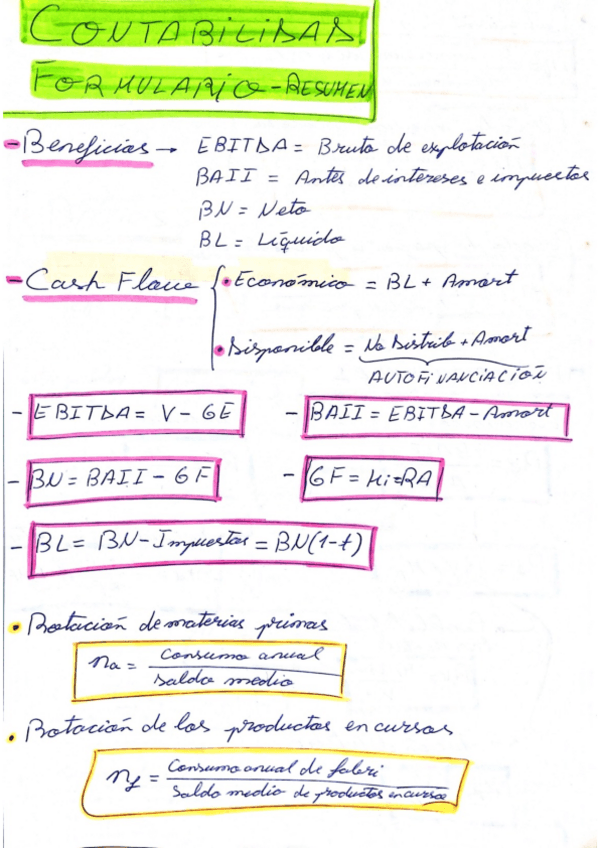 CONTABILIDAD
FORMULARIO-RESUMEN
- Beneficios → EBITDA = Bruto de explotación
BAII = Antes de intereses e impuestos
BN = Neto
BL = Líquido
- Cash Flow { • Económico = BL + Amort
• Disponible = No Distrib + Amort
AUTOFINANCIACIÓN
- EBITDA = V - GE - BAII = EBITDA - Amort
- BN = BAII - GF - GF = Ki=RA
- BL = BN - Impuestos = BN(1-t)
• Rotación de materias primas
na = Consumo anual
Saldo medio
• Rotación de los productos en cursos
nf = Consumo anual de fabri
Saldo medio de productos en curso